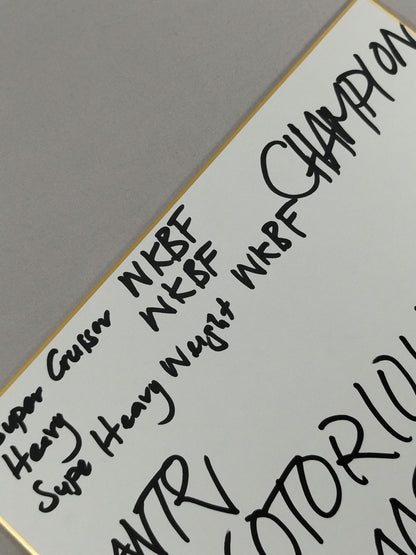 CHAMPION
Super Cruiser WKBF
Heavy WKBF
Supe Heavy Weight WKBF
ANTR
OTORIOU